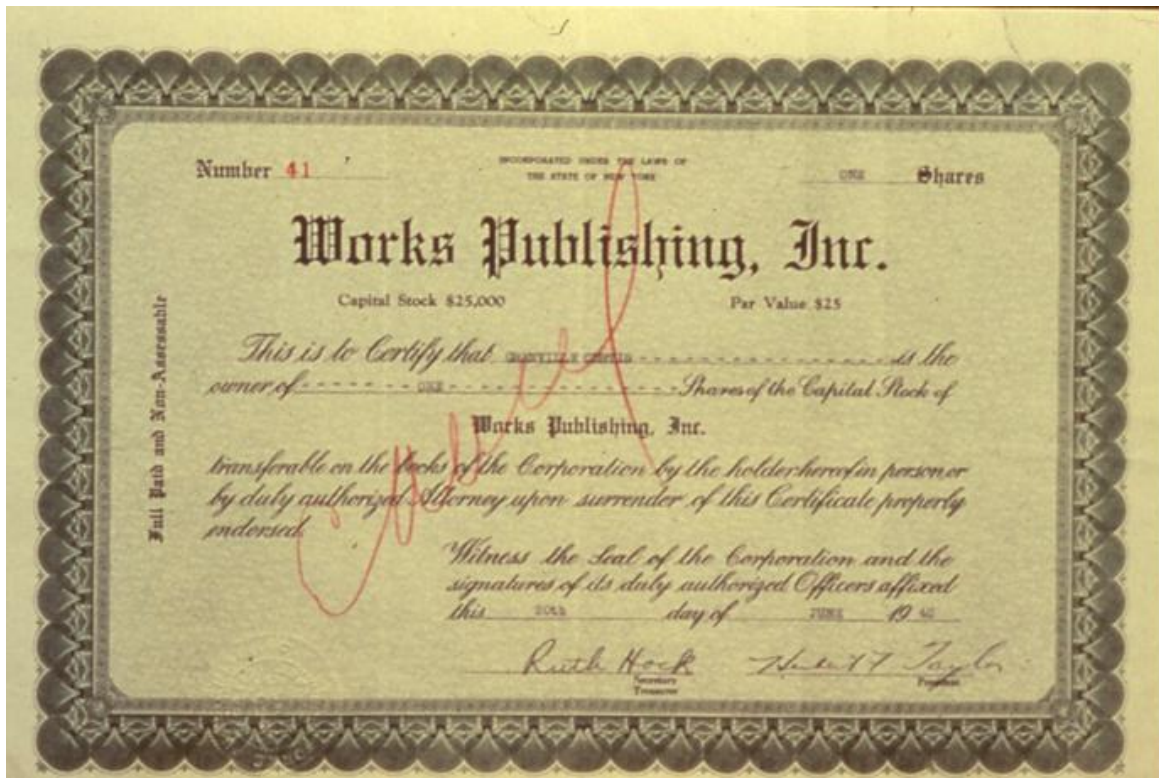 Number 41
INCORPORATED UNDER THE LAWS OF
THE STATE OF NEW YORK
ONE Shares
Works Publishing, Inc.
Capital Stock $25,000
Par Value $25
Full Paid and Non-Assessable
This is to Certify that GRANVILLE CURTIS is the
owner of ONE Shares of the Capital Stock of
Works Publishing, Inc.
transferable on the books of the Corporation by the holder hereof in person or
by duly authorized Attorney upon surrender of this Certificate properly
endorsed.
Witness the Seal of the Corporation and the
signatures of its duly authorized Officers affixed
this 20th day of JUNE 19 40
Ruth Hock
Secretary
Treasurer
President
Cancel